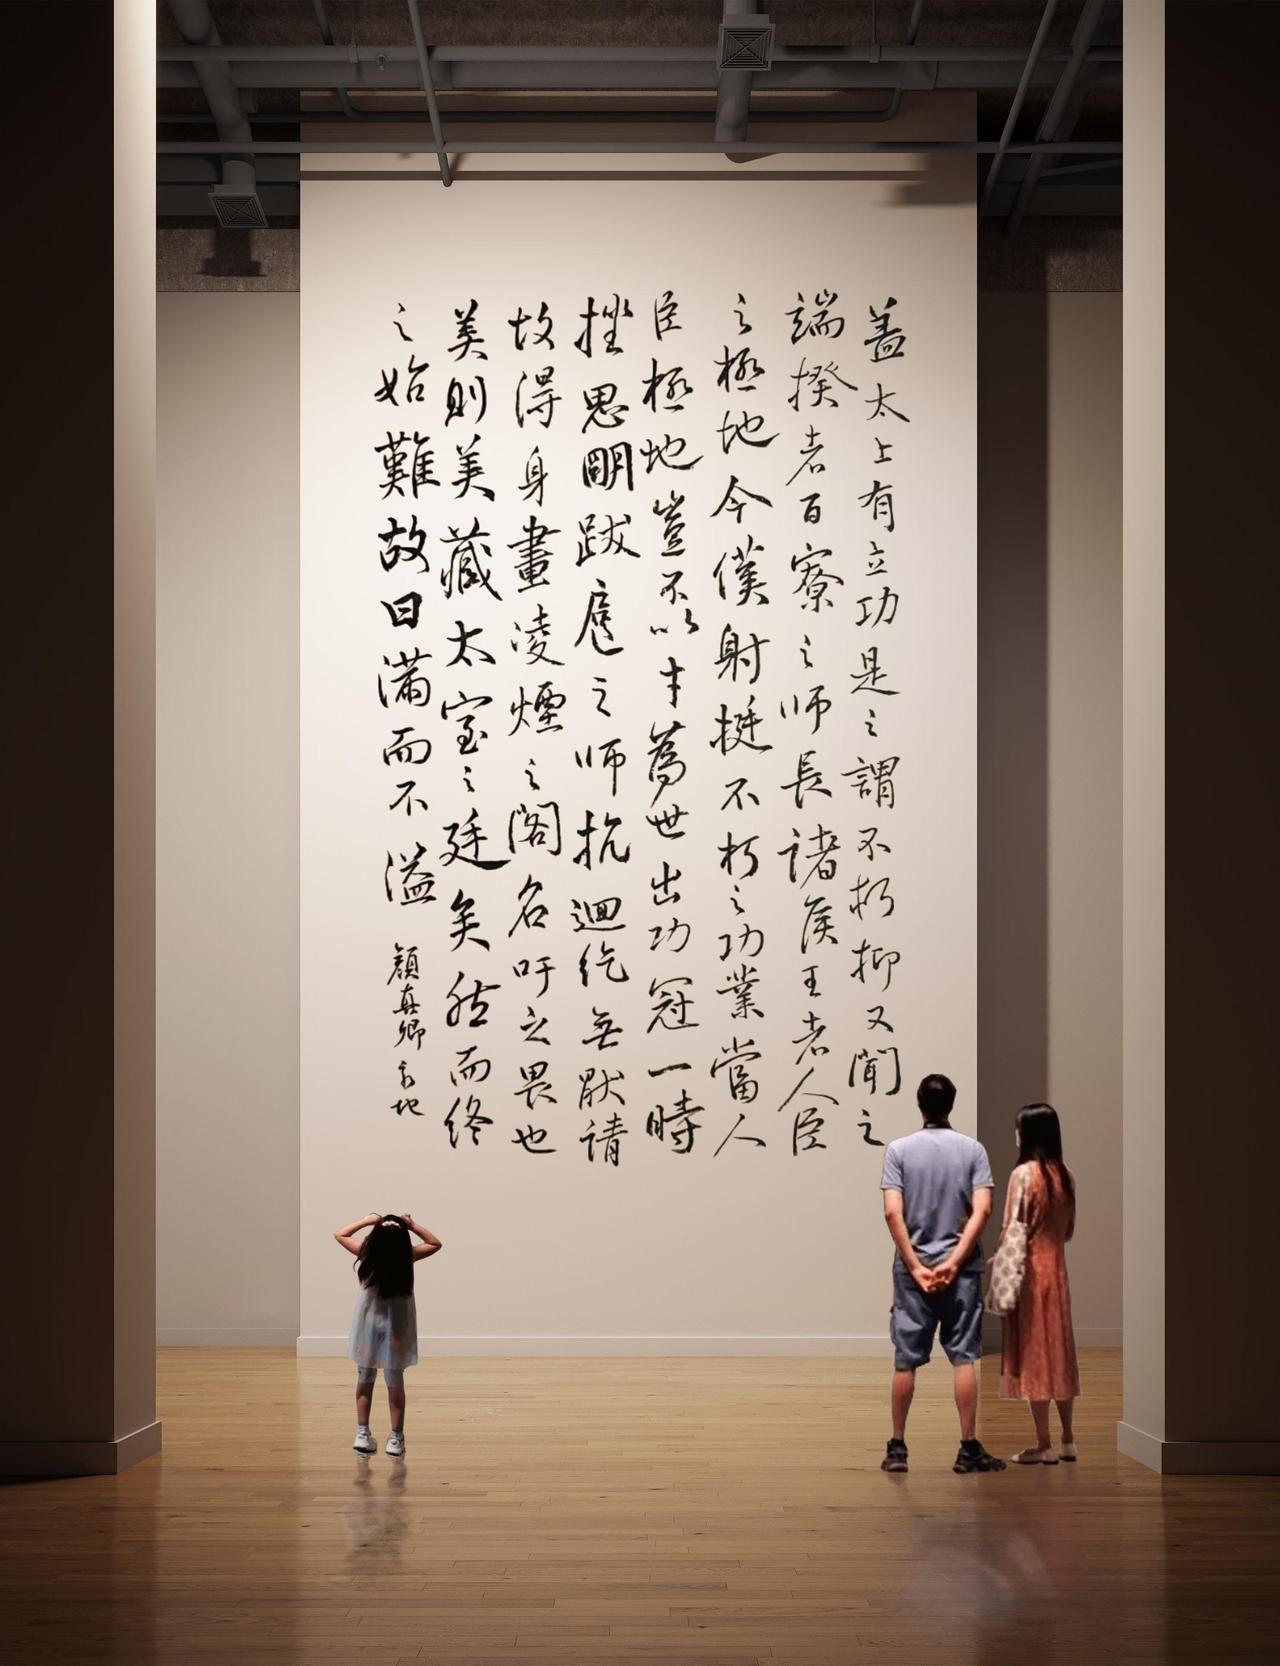 盖太上有立功是之謂不朽抑又聞之
端揆者百寮之師長諸侯王者人臣
之極地今僕射挺不朽之功業當人
臣極地豈不以才為世出功冠一時
挫思明跋扈之師抗迴紇無厭請
故得身畫凌煙之閣名吁足畏也
美則美藏太室之廷矣然而终
之始難故曰滿而不溢
顏真卿